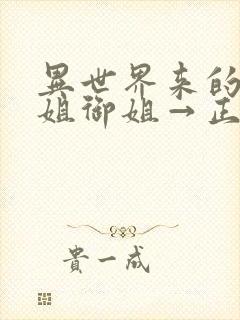 異世界来的
姐御姐→正
貴一成